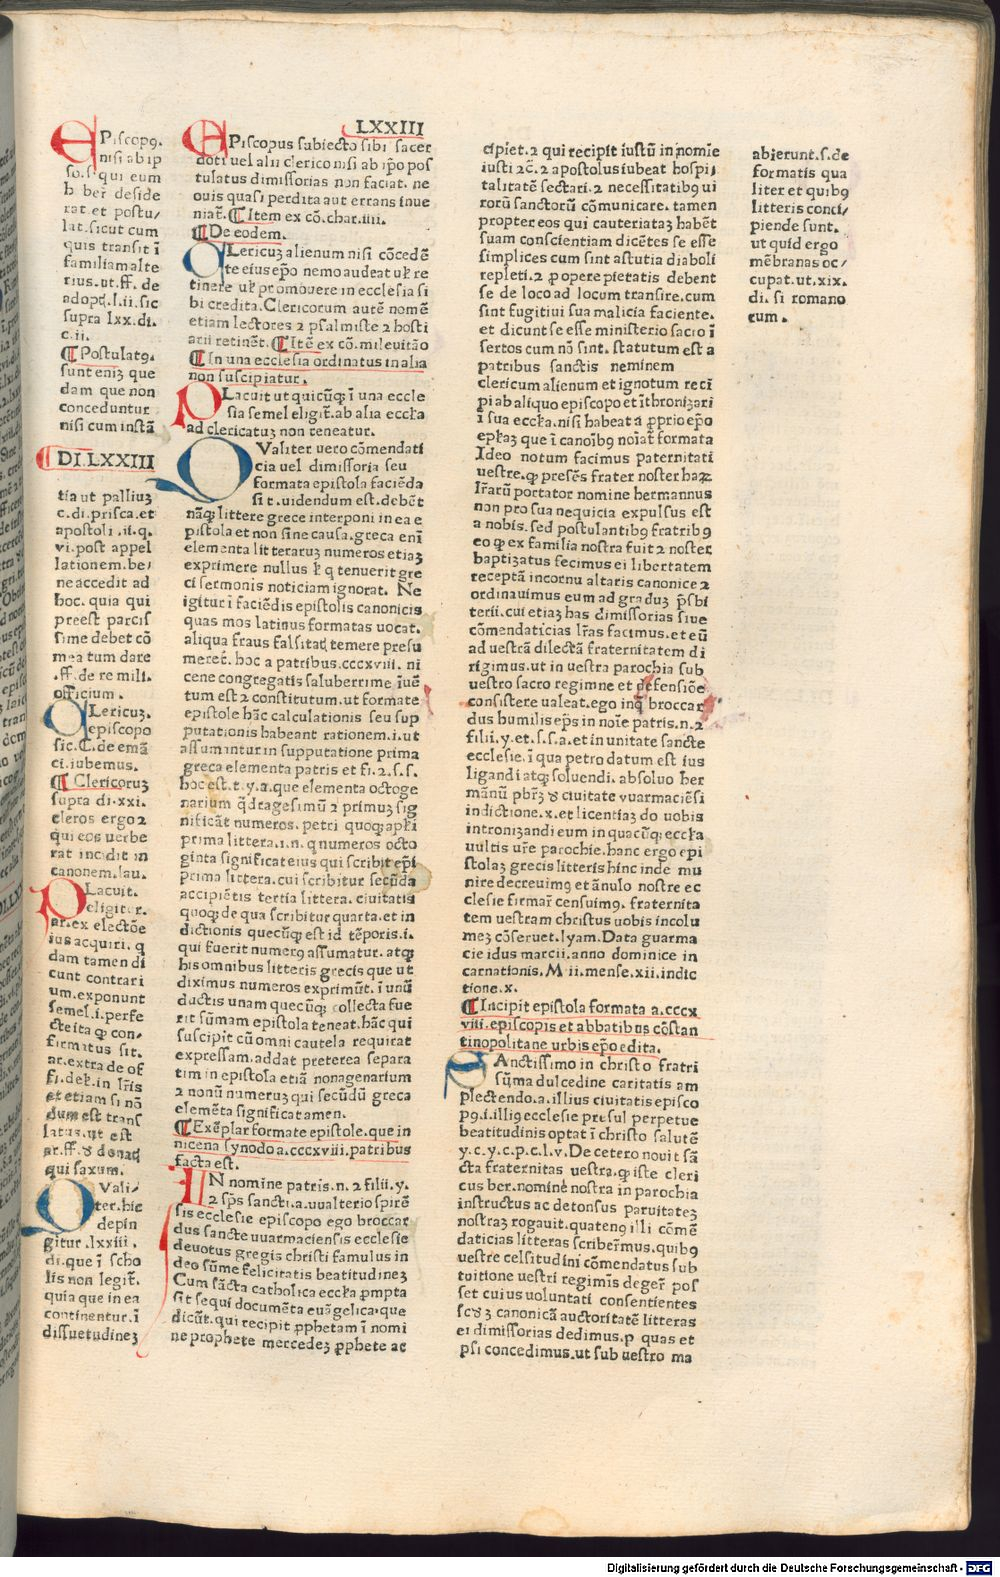 LXXIII
EPiscopꝯ.
nisi ab ip
so.s qui eum
h ber deside
rat et postu/
lat.sicut cum
quis transit ī
familiam alte
rius.ut.ff. de
adopt̄.l.ii.sic
supra lxx.di.
c.ii.
¶ Postulatꝯ.
sunt eniʒ que
dam que non
conceduntur
nisi cum instā
DI.LXXIII
tia ut palliuʒ
c.di.prisca.et
apostoli.ii.q.
vi.post appel
lationem.be/
ne accedit ad
hoc. quia qui
preest parcis
sime debet cō
mea tum dare
.ff.de re mili.
officium.
CLericuʒ.
episcopo
sic.C.de emā
ci.iubemus.
¶ Clericoruʒ
supra di.xxi.
cleros ergo 2
qui eos uerbe
rat incidit in
canonem.lau.
PLacuit.
eligitur.
ar.ex electōe
ius acquiri. q
dam tamen di
cunt contrari
um.exponunt
semel.i.perfe
cte ita ꝙ con/
firmatus sit.
ar.extra de of
fi.del̄.in lr̄is
et etiam si nō
dum est trans
latus.ut est
ar.ff.de donat̄
qui saxum.
QVali/
ter.hic
depin
gitur.lxxiii.
di.que ī scho
lis non legit̄.
quia que in ea
continentur.ī
dissuetudineʒ
EPiscopus subiecto sibi sacer
doti uel alii clerico nisi ab ip̄o pos
tulatus dimissorias non faciat. ne
ouis quasi perdita aut errans inue
niat̄. ¶ Item ex cō.char.iiii.
¶ De eodem.
CLericuʒ alienum nisi cōcedē
te eius ep̄o nemo audeat ul̄ re
tinere ul̄ promouere in ecclesia si
bi credita.Clericorum autē nomē
etiam lectores 2 psalmiste 2 hosti
arii retinēt. ¶ Itē ex cō.mileuitāo
¶ In una ecclesia ordinatus in alia
non suscipiatur.
PLacuit ut quicūqꝫ ī una eccle
sia semel eligit̄.ab alia eccl̄ia
ad clericatuʒ non teneatur.
QValiter uero cōmendati
cia uel dimissoria seu
formata epistola faciēda
sit.uidendum est.debēt
nāqꝫ littere grece interponi in ea e
pistola et non sine causa.greca enī
elementa litteraruʒ numeros etiaʒ
exprimere nullus ul̄ q tenuerit gre
ci sermonis noticiam ignorat. Ne
igitur ī faciēdis epistolis canonicis
quas mos latinus formatas uocat.
aliqua fraus falsitat̄ temere presu
meret̄.hoc a patribus.cccxviii. ni
cene congregatis saluberrime īuē
tum est 2 constitutum.ut formate
epistole hāc calculationis seu sup
putationis habeant rationem.i.ut
assumantur in supputatione prima
greca elementa patris et fi.2.s.s.
hoc est.t.y.a.que elementa octoge
narium q̄dragesimū 2 primuʒ sig
nificāt numeros. petri quoqꝫ apl̄i
prima littera.ı.n.q numeros octo
ginta significat eius qui scribit ep̄i
prima littera.cui scribitur secūda
accipiētis tertia littera. ciuitatis
quoqꝫ de qua scribitur quarta.et in
dictionis quecūqꝫ est id tēporis.i.
qui fuerit numerꝯ assumatur.atqꝫ
his omnibus litteris grecis que ut
diximus numeros exprimūt.ī unū
ductis unam quecūqꝫ collecta fue
rit sūmam epistola teneat.hāc qui
suscipit cū omni cautela requirat
expressam.addat preterea separa
tim in epistola etiā nonagenarium
2 nonū numeruʒ qui secūdū greca
elemēta significat amen.
¶ Exēplar formate epistole.que in
nicena synodo a.cccxviii.patribus
facta est.
IN nomine patris.n.2 filii.y.
2 sp̄s sancti.a.ualterio spirē
sis ecclesie episcopo ego broccar
dus sancte uuarmaciensis ecclesie
deuotus gregis christi famulus in
deo sūme felicitatis beatitudineʒ
Cum sācta catholica eccl̄ia ꝓmpta
sit sequi documēta euāgelica.que
dicūt.qui recipit ꝓphetam ī nomi
ne prophete mercedeʒ ꝓphete ac
cipiet.2 qui recipit iustū in nomīe
iusti 2c̄.2 apostolus iubeat hospi/
talitatē sectari.2 necessitatibꝯ ui
rorū sanctorū cōmunicare. tamen
propter eos qui cauteriataʒ habēt
suam conscientiam dicētes se esse
simplices cum sint astutia diaboli
repleti.2 ꝓ opere pietatis debent
se de loco ad locum transire.cum
sint fugitiui sua malicia faciente.
et dicunt se esse ministerio sacro ī
sertos cum nō sint. statutum est a
patribus sanctis neminem
clericum alienum et ignotum reci
pi ab aliquo episcopo et īthronizari
ī sua eccl̄ia.nisi habeat a ꝓprio ep̄o
epl̄aʒ que ī canoībꝯ noīat̄ formata
Ideo notum facimus paternitati
uestre.ꝙ presēs frater noster haꝝ
lr̄arū portator nomine hermannus
non pro sua nequicia expulsus est
a nobis.sed postulantibꝯ fratribꝯ
eo ꝙ ex familia nostra fuit 2 noster
baptizatus fecimus ei libertatem
receptā in cornu altaris canonice 2
ordinauimus eum ad graduʒ p̄sbi
terii.cui etiaʒ has dimissorias siue
cōmendaticias lr̄as facimus.et eū
ad uestrā dilectā fraternitatem di
rigimus.ut in uestra parochia sub
uestro sacro regimne et defensiōe
consistere ualeat.ego inqꝫ broccar
dus humilis ep̄s in noīe patris.n.2
filii.y.et.s.s.a.et in unitate sancte
ecclesie.ī qua petro datum est ius
ligandi atqꝫ soluendi.absoluo her
mānū pb̄rʒ de ciuitate vuarmaciēsi
indictione.x.et licentiaʒ do uobis
intronizandi eum in quacūqꝫ eccl̄ia
uultis ur̄e parochie.hanc ergo epi
stolaʒ grecis litteris hinc inde mu
nire decreuimꝯ et ānulo nostre ec
clesie firmar̄ censuimꝯ. fraternita
tem uestram christus uobis incolu
meʒ cōseruet.lyam.Data guarma
cie idus marcii.anno dominice in
carnationis.M ii.mense.xii.indic
tione.x.
¶ Incipit epistola formata a.cccx
viii.episcopis et abbatibus cōstan
tinopolitane urbis ep̄o edita.
SAnctissimo in christo fratri
sūma dulcedine caritatis am
plectendo.a.illius ciuitatis episco
pꝯ.i.illiꝯ ecclesie presul perpetue
beatitudinis optat ī christo salutē
y.c.y.c.p.c.l.v.De cetero nouit sā
cta fraternitas uestra.ꝙ iste cleri
cus ber.nomine nostra in parochia
instructus ac detonsus paruitateʒ
nostraʒ rogauit.quatenꝯ illi cōmē
daticias litteras scriberemus.quibꝯ
uestre celsitudini cōmendatus sub
tuitione uestri regimīs deger̄ pos
set cuius uoluntati consentientes
scdʒ canonicā auctoritatē litteras
ei dimissorias dedimus.p quas et
psi concedimus.ut sub uestro ma
abierunt.s.de
formatis qua
liter et quibꝯ
litteris conci/
piende sunt.
ut quid ergo
mēbranas oc/
cupat.ut.xix.
di. si romano
rum.
Digitalisierung gefördert durch die Deutsche Forschungsgemeinschaft - DFG